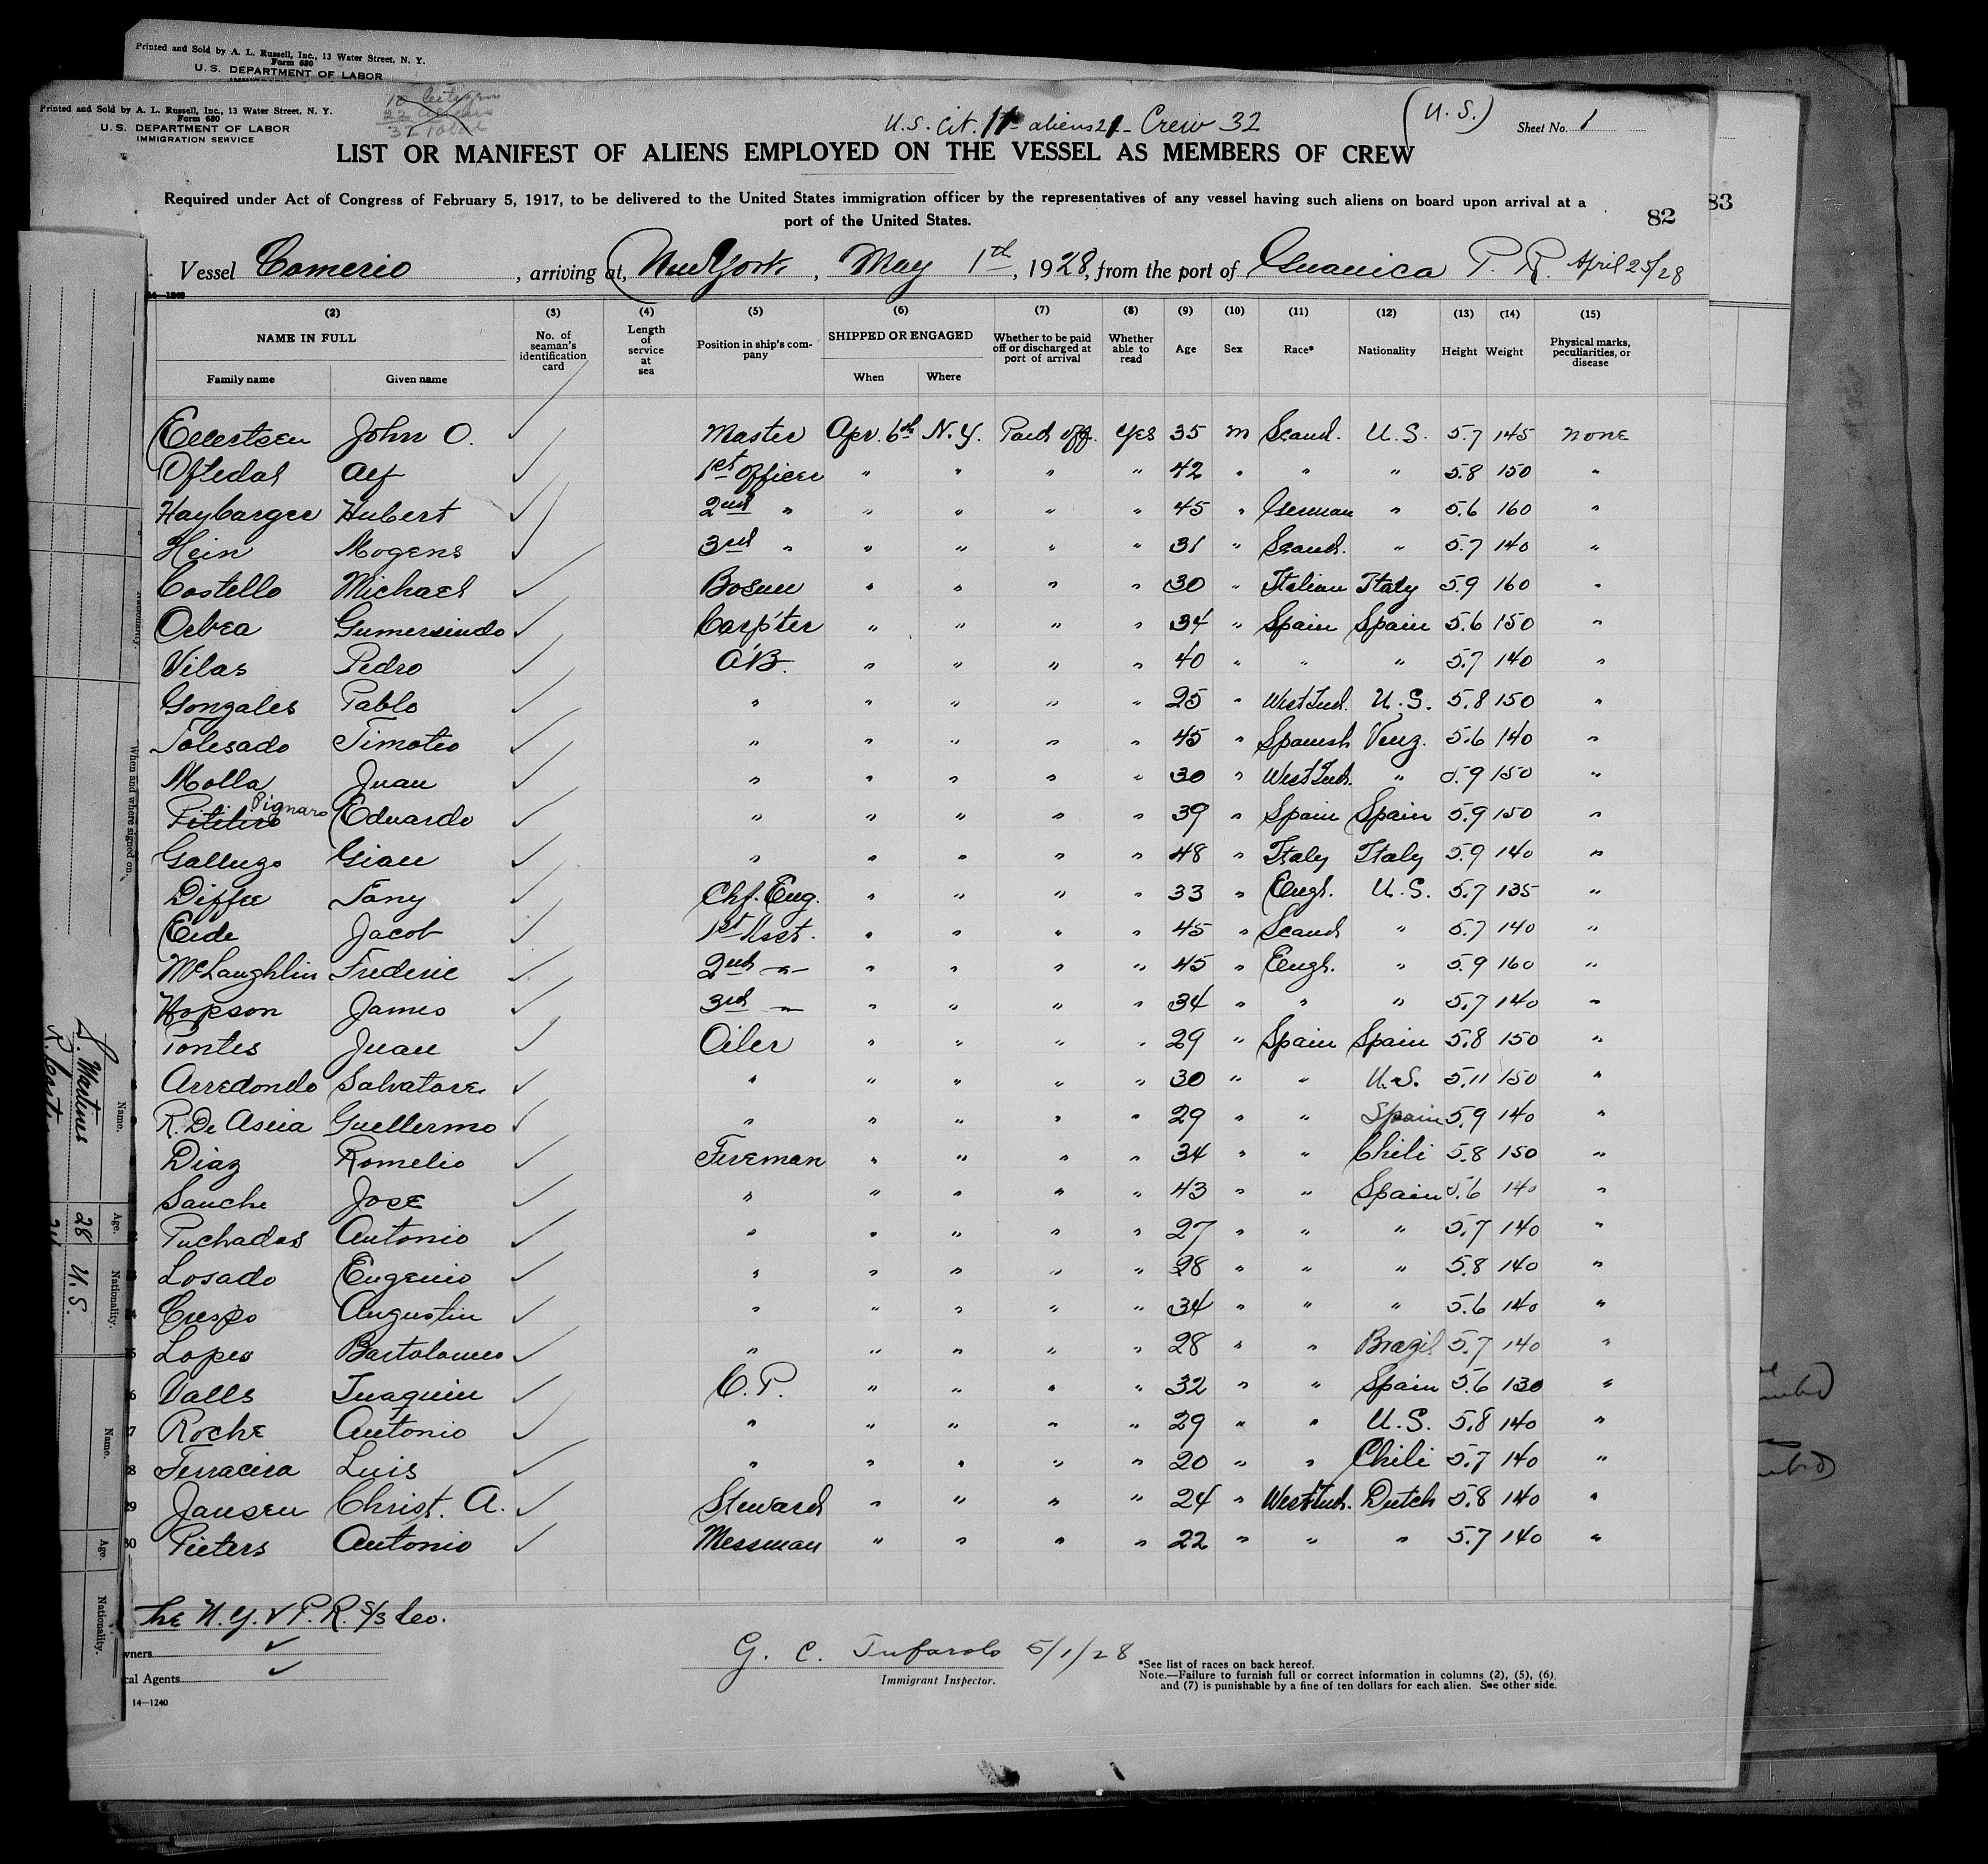 Printed and Sold by A. L. Russell, Inc., 13 Water Street, N. Y.
Form 680
U. S. DEPARTMENT OF LABOR
Printed and Sold by A. L. Russell, Inc., 13 Water Street, N. Y.
Form 680
U. S. DEPARTMENT OF LABOR
IMMIGRATION SERVICE
U.S. Cit. 11 aliens 21 - Crew 32
(U. S.)
Sheet No. 1
LIST OR MANIFEST OF ALIENS EMPLOYED ON THE VESSEL AS MEMBERS OF CREW
Required under Act of Congress of February 5, 1917, to be delivered to the United States immigration officer by the representatives of any vessel having such aliens on board upon arrival at a
port of the United States.
82
83
Vessel Comerio, arriving at, New York, May 1th, 1928, from the port of Guanica P. R. April 25/28
(2) (3) (4) (5) (6) (7) (8) (9) (10) (11) (12) (13) (14) (15)
NAME IN FULL No. of seaman's identification card Length of service at sea Position in ship's company SHIPPED OR ENGAGED Whether to be paid off or discharged at port of arrival Whether able to read Age Sex Race* Nationality Height Weight Physical marks, peculiarities, or disease
Family name Given name When Where
Evertsen John O. ✓ Master Apr. 6th N.Y. Paid off. yes 35 m Scand. U.S. 5.7 145 none
Oftedal Alf ✓ 1st Officer " " " " 42 " " " 5.8 150 "
Haybarger Hubert ✓ 2nd " " " " " 45 " German " 5.6 160 "
Hein Mogens ✓ 3rd " " " " " 31 " Scand. " 5.7 140 "
Costello Michael ✓ Bosun " " " " 30 " Italian Italy 5.9 160 "
Orbea Gumersindo ✓ Carp'ter " " " " 34 " Spain Spain 5.6 150 "
Vilas Pedro ✓ A.B. " " " " 40 " " " 5.7 140 "
Gonzales Pablo ✓ " " " " " 25 " West Ind. U.S. 5.8 150 "
Tolesado Timoteo ✓ " " " " " 45 " Spanish Venz. 5.6 140 "
Molla Juan ✓ " " " " " 30 " West Ind. " 5.9 150 "
Pignaro Eduardo ✓ " " " " " 39 " Spain Spain 5.9 150 "
Gallugo Gian ✓ " " " " " 48 " Italy Italy 5.9 140 "
Diffee Tony ✓ Chf. Eng. " " " " 33 " Engl. U.S. 5.7 135 "
Eide Jacob ✓ 1st Asst. " " " " 45 " Scand " 5.7 140 "
McLaughlin Frederic ✓ 2nd " " " " " 45 " Engl. " 5.9 160 "
Hopson James ✓ 3rd " " " " " 34 " " " 5.7 140 "
Pontes Juan ✓ Oiler " " " " 29 " Spain Spain 5.8 150 "
Arredondo Salvatore ✓ " " " " " 30 " " U.S. 5.11 150 "
R. De Asua Guellermo ✓ " " " " " 29 " " Spain 5.9 140 "
Diaz Romelio ✓ Fireman " " " " 34 " " Chili 5.8 150 "
Sanche Jose ✓ " " " " " 43 " " Spain 5.6 140 "
Puchadas Antonio ✓ " " " " " 27 " " " 5.7 140 "
Losado Eugenio ✓ " " " " " 28 " " " 5.8 140 "
Crespo Augustin ✓ " " " " " 34 " " " 5.6 140 "
Lopes Bartolomeo ✓ " " " " " 28 " " Brazil 5.7 140 "
Valls Juaquin ✓ C.P. " " " " 32 " " Spain 5.6 130 "
Roche Antonio ✓ " " " " " 29 " " U.S. 5.8 140 "
Ferraeira Luis ✓ " " " " " 20 " " Chili 5.7 140 "
29 Jansen Christ. A. ✓ Steward " " " " 24 " West Ind. Dutch 5.8 140 "
30 Pieters Antonio ✓ Messman " " " " 22 " " " 5.7 140 "
The N.Y. & P.R. S/S Co.
wners ✓
cal Agents ✓
14—1240
G. C. Tufarolo 5/1/28
Immigrant Inspector.
*See list of races on back hereof.
Note.—Failure to furnish full or correct information in columns (2), (5), (6),
and (7) is punishable by a fine of ten dollars for each alien. See other side.
When and where signed on.
Name.
S. Martines
Age.
28
Nationality.
U. S.
Name.
Age.
Nationality.